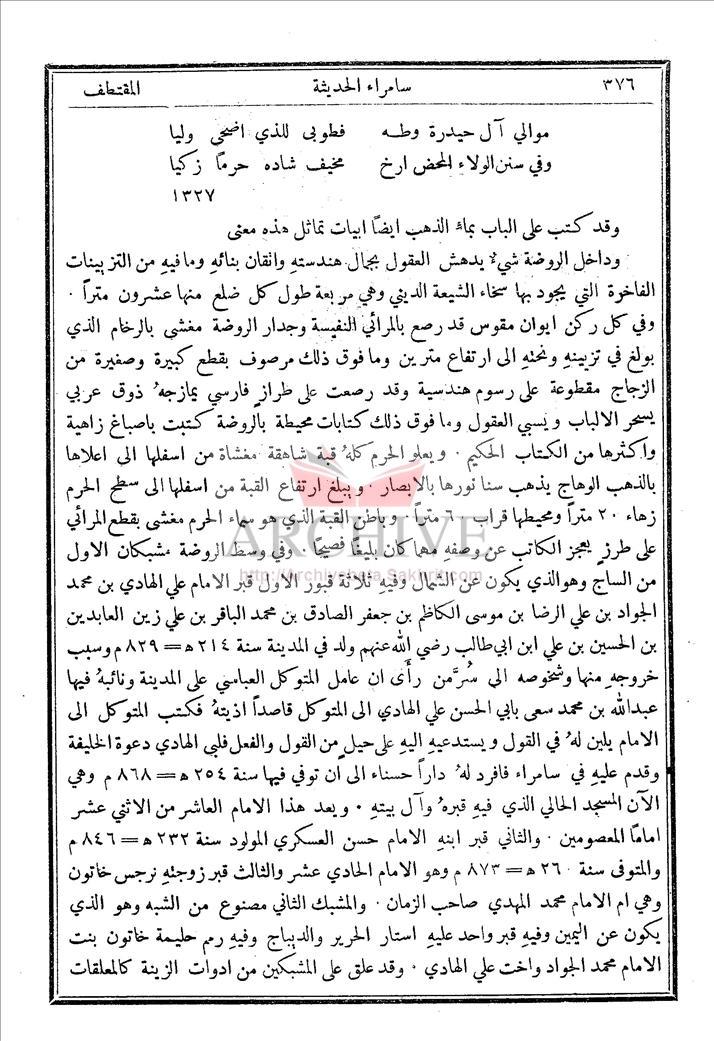 ٣٧٦ سامراء الحديثة المقتطف
موالي آل حيدرة وطه فطوبى للذي اضحى وليا
وفي سنن الولاء المحض ارخ مخيف شاده حرمًا زكيا
١٣٢٧
وقد كتب على الباب بماءِ الذهب ايضًا ابيات تماثل هذه معنى
وداخل الروضة شيءٌ يدهش العقول بجمال هندستهِ واتقان بنائهِ وما فيهِ من التزيينات
الفاخرة التي يجود بها سخاء الشيعة الديني وهي مربعة طول كل ضلع منها عشرون مترًا .
وفي كل ركن ايوان مقوس قد رصع بالمرائي النفيسة وجدار الروضة مغشى بالرخام الذي
بولغ في تزيينهِ ونحتهِ الى ارتفاع مترين وما فوق ذلك مرصوف بقطع كبيرة وصغيرة من
الزجاج مقطوعة على رسوم هندسية وقد رصعت على طرازٍ فارسي يمازجهُ ذوق عربي
يسحر الالباب ويسبي العقول وما فوق ذلك كتابات محيطة بالروضة كتبت باصباغ زاهية
واكثرها من الكتاب الحكيم . ويعلو الحرم كلهُ قبة شاهقة مغشاة من اسفلها الى اعلاها
بالذهب الوهاج يذهب سنا نورها بالابصار . ويبلغ ارتفاع القبة من اسفلها الى سطح الحرم
زهاء ٢٠ مترًا ومحيطها قراب ٦٠ مترًا . وباطن القبة الذي هو سماء الحرم مغشى بقطع المرائي
على طرزٍ يعجز الكاتب عن وصفهِ مهما كان بليغًا فصيحًا . وفي وسط الروضة مشبكان الاول
من الساج وهو الذي يكون عن الشمال وفيهِ ثلاثة قبور الاول قبر الامام علي الهادي بن محمد
الجواد بن علي الرضا بن موسى الكاظم بن جعفر الصادق بن محمد الباقر بن علي زين العابدين
بن الحسين بن علي ابن ابي طالب رضي الله عنهم ولد في المدينة سنة ٢١٤ ه = ٨٢٩ م وسبب
خروجهِ منها وشخوصه الى سُرَّ من رأَى ان عامل المتوكل العباسي على المدينة ونائبهُ فيها
عبدالله بن محمد سعى بابي الحسن علي الهادي الى المتوكل قاصداً اذيتهُ فكتب المتوكل الى
الامام يلين لهُ في القول ويستدعيهِ اليهِ على حيلٍ من القول والفعل فلبى الهادي دعوة الخليفة
وقدم عليهِ في سامراء فافرد لهُ داراً حسناء الى ان توفي فيها سنة ٢٥٤ ه = ٨٦٨ م وهي
الآن المسجد الحالي الذي فيهِ قبرهُ وآل بيتهِ . ويعد هذا الامام العاشر من الاثني عشر
امامًا المعصومين . والثاني قبر ابنهِ الامام حسن العسكري المولود سنة ٢٣٢ ه = ٨٤٦ م
والمتوفى سنة ٢٦٠ ه = ٨٧٣ م وهو الامام الحادي عشر والثالث قبر زوجتهِ نرجس خاتون
وهي ام الامام محمد المهدي صاحب الزمان . والمشبك الثاني مصنوع من الشبه وهو الذي
يكون عن اليمين وفيهِ قبر واحد عليهِ استار الحرير والديباج وفيهِ رمم حليمة خاتون بنت
الامام محمد الجواد واخت علي الهادي . وقد علق على المشبكين من ادوات الزينة كالمعلقات
ARCHIVE
http://Archivebeta.Sakhrit.com